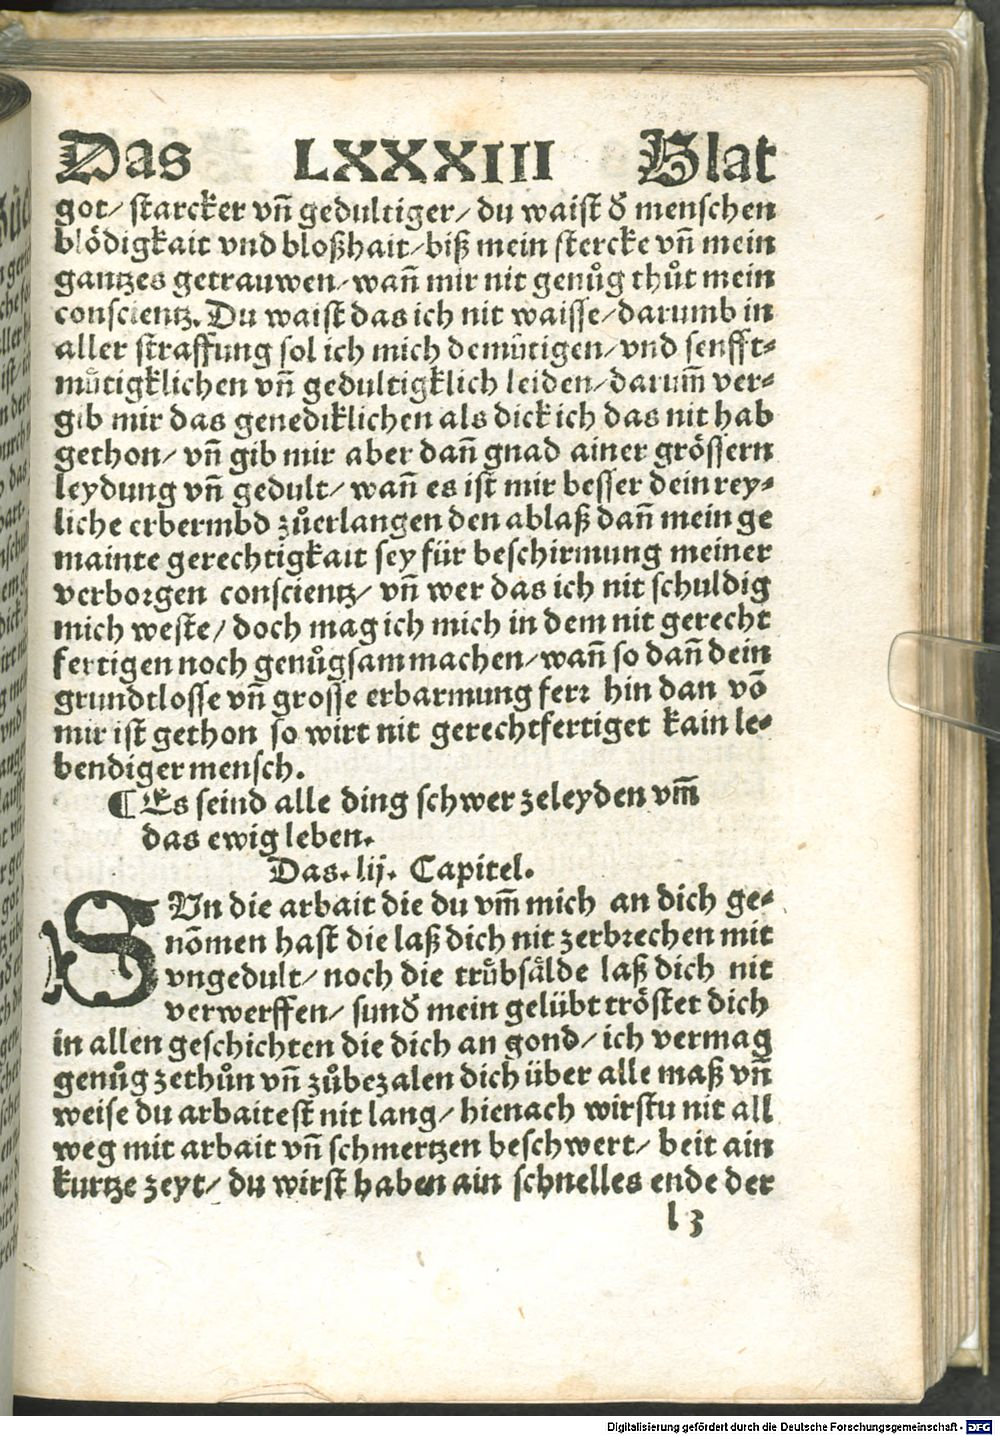 Das LXXXIII Blat
got/ starcker vn̄ gedultiger/ du waist δ menschen
blödigkait vnd bloßhait/ biß mein stercke vn̄ mein
gantzes getrauwen/ wan̄ mir nit genůg thůt mein
conscientz. Du waist das ich nit waisse/ darumb in
aller straffung sol ich mich demůtigen/ vnd senfft⸗
můtigklichen vn̄ gedultigklich leiden/ darum̄ ver⸗
gib mir das genediklichen als dick ich das nit hab
gethon/ vn̄ gib mir aber dan̄ gnad ainer grössern
leydung vn̄ gedult/ wan̄ es ist mir besser dein rey⸗
liche erbermbd zůerlangen den ablaß dan̄ mein ge
mainte gerechtigkait sey für beschirmung meiner
verborgen conscientz/ vn̄ wer das ich nit schuldig
mich weste/ doch mag ich mich in dem nit gerecht
fertigen noch genůgsam machen/ wan̄ so dan̄ dein
grundtlosse vn̄ grosse erbarmung ferꝛ hin dan vō
mir ist gethon so wirt nit gerechtfertiget kain le⸗
bendiger mensch.
¶ Es seind alle ding schwer zeleyden vm̄
das ewig leben.
Das. lij. Capitel.
SVn die arbait die du vm̄ mich an dich ge⸗
nōmen hast die laß dich nit zerbꝛechen mit
vngedult/ noch die trůbsålde laß dich nit
verwerffen/ sunδ mein gelübt tröstet dich
in allen geschichten die dich an gond/ ich vermag
genůg zethůn vn̄ zůbezalen dich über alle maß vn̄
weise du arbaitest nit lang/ hienach wirstu nit all
weg mit arbait vn̄ schmertzen beschwert/ beit ain
kurtze zeyt/ du wirst haben ain schnelles ende der
l 3
Digitalisierung gefördert durch die Deutsche Forschungsgemeinschaft - DFG